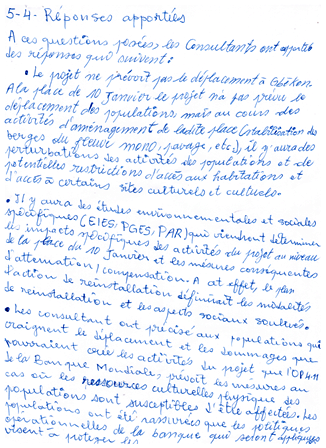 5-4- Réponses apportées
A ces questions posées, les Consultants ont apporté
des réponses qui suivent:
• Le projet ne prévoit pas le déplacement à
A la place de 10 Janvier le projet n'a pas prévu le
déplacement des populations, mais au cours des
activités d'aménagement de ladite place (stabilisation des
berges du fleuve mono, pavage, etc), il y'aura des
perturbations des activités des populations et de
potentielles restrictions d'accès aux habitations et
d'accès à certains sites culturels et cultuels.
• Il y aura des études environnementales et sociales
spécifiques (EIES, PGES, PAR) qui viendront déterminer
les impacts spécifiques des activités du projet au niveau
de la place du 10 Janvier et les mesures conséquentes
d'atténuation/compensation. A cet effet, le plan
d'action de réinstallation définirait les modalités
de réinstallation et les aspects sociaux soulevés.
• Les consultant ont précisé aux populations qui
craignent le déplacement et les dommages que
pourraient créer les activités du projet que l'OP 4.11
de la Banque Mondiale, prévoit les mesures au
cas où les ressources culturelles physique des
populations sont susceptibles d'être affectées. Les
populations ont été rassurées que les politiques
opérationnelles de la banque qui seront appliquées
visent à protéger les